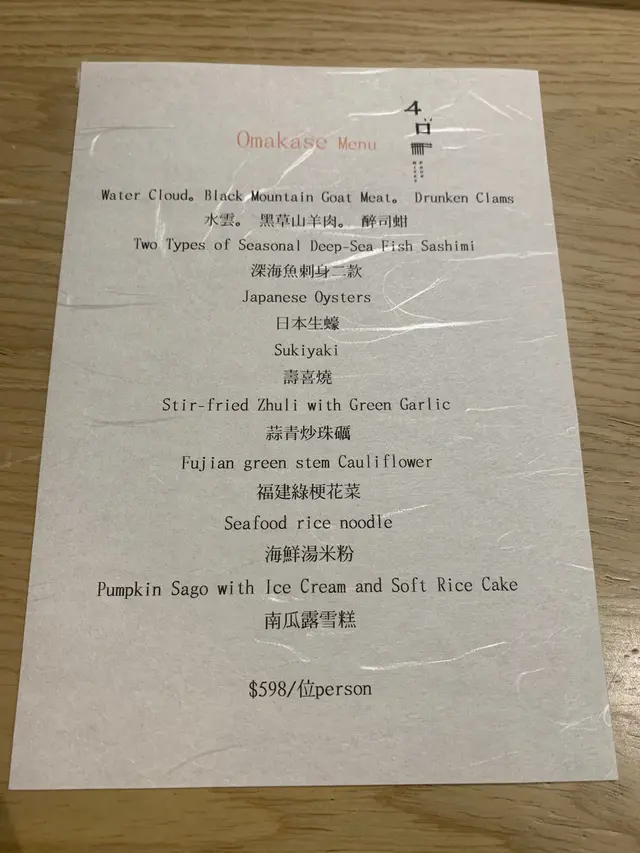 Omakase Menu
Water Cloud。Black Mountain Goat Meat。 Drunken Clams
水雲。 黑草山羊肉。 醉司蚶
Two Types of Seasonal Deep-Sea Fish Sashimi
深海魚刺身二款
Japanese Oysters
日本生蠔
Sukiyaki
壽喜燒
Stir-fried Zhuli with Green Garlic
蒜青炒珠礪
Fujian green stem Cauliflower
福建綠梗花菜
Seafood rice noodle
海鮮湯米粉
Pumpkin Sago with Ice Cream and Soft Rice Cake
南瓜露雪糕
$598/位person